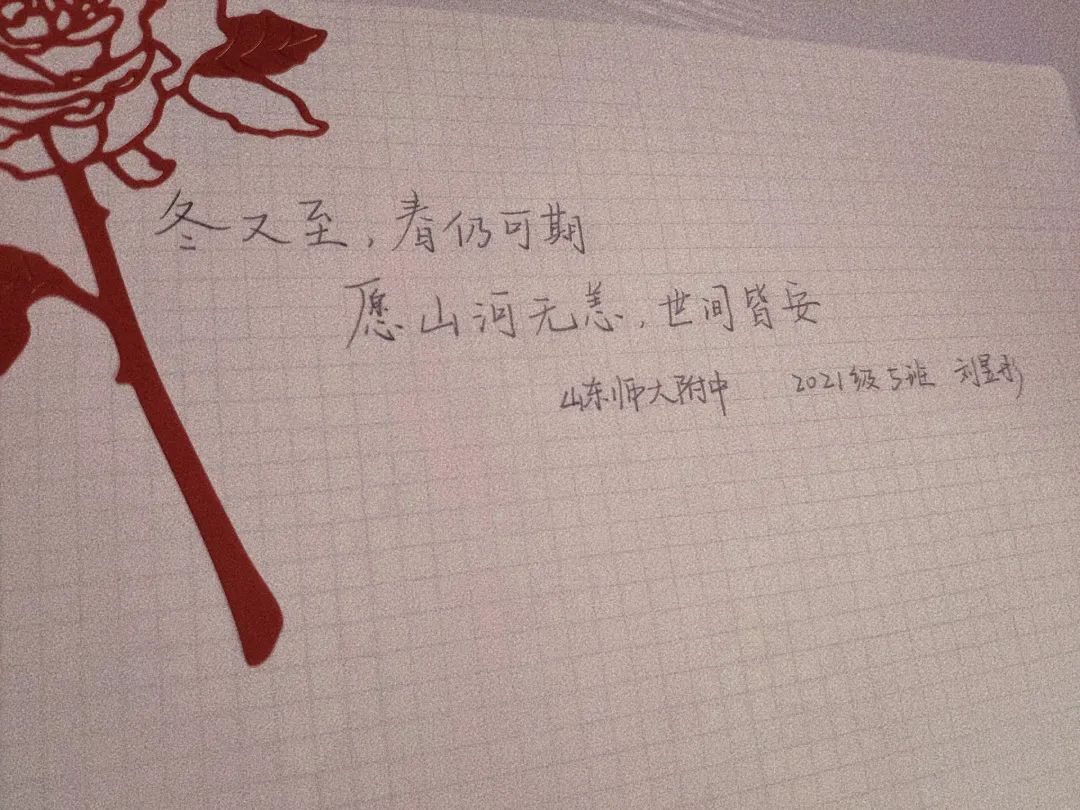 冬又至，春仍可期
愿山河无恙，世间皆安
山东师大附中 2021级5班 刘昱彤